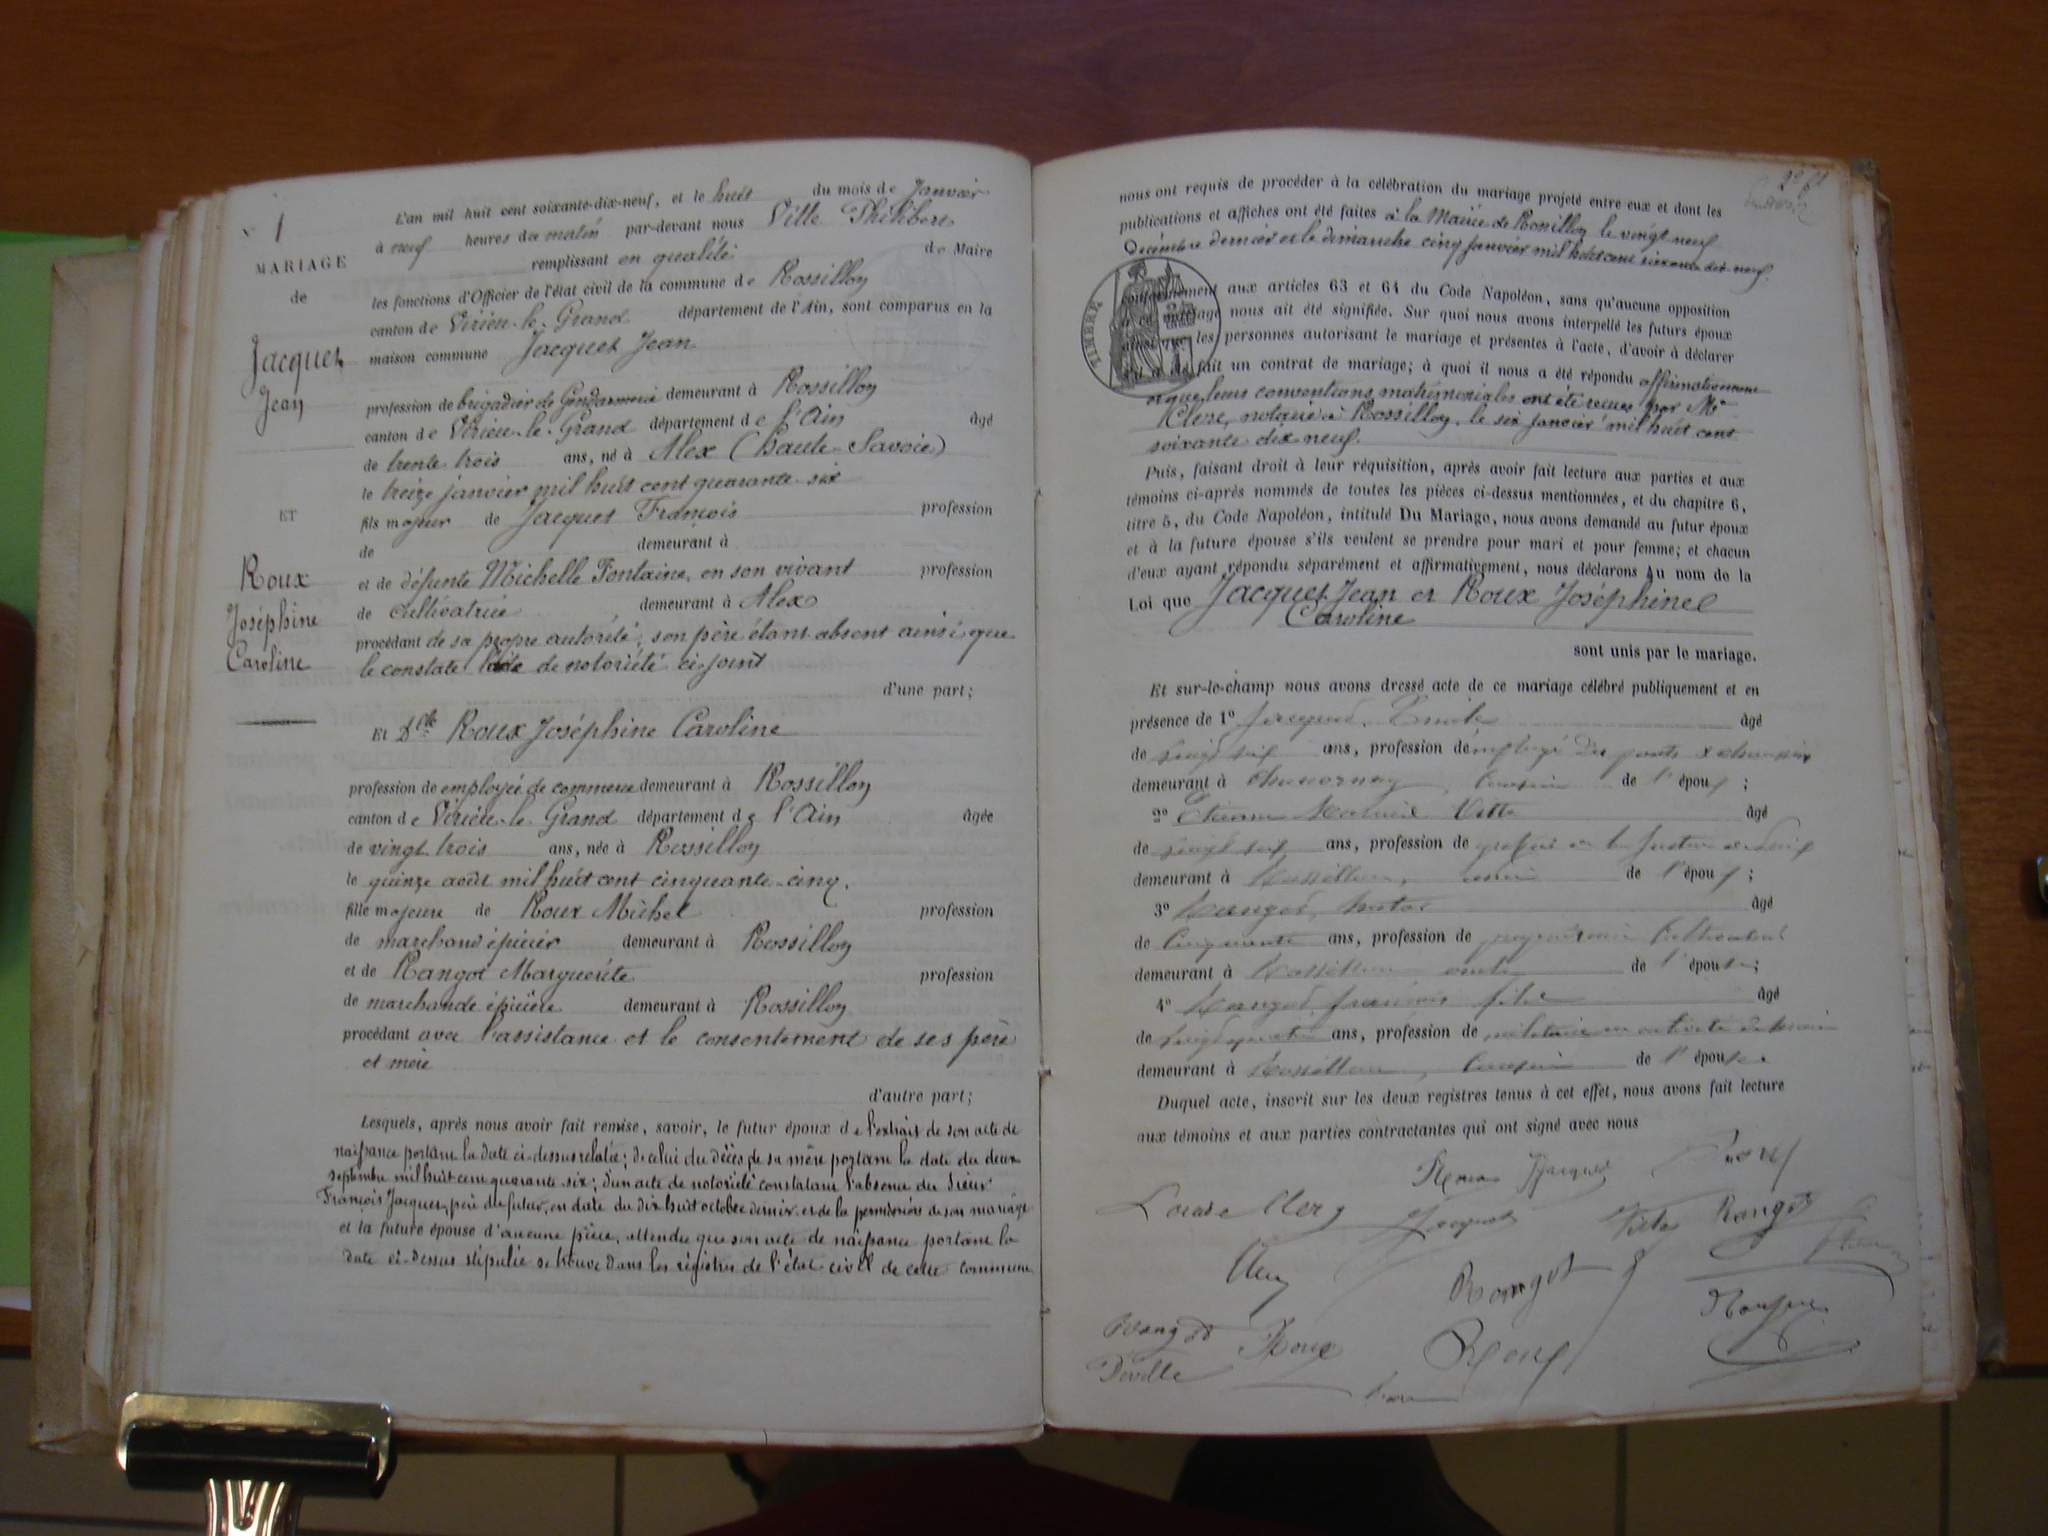 1
MARIAGE
de
Jacquet
Jean
ET
Roux
Joséphine
Caroline
L'an mil huit cent soixante-dix-neuf, et le huit du mois de Janvier
à neuf heures du matin par-devant nous Vitte Philibert
remplissant en qualité de Maire
les fonctions d'Officier de l'état civil de la commune de Rossillon
canton de Virieu-le-Grand département de l'Ain, sont comparus en la
maison commune Jacquet Jean
profession de brigadier de Gendarmerie demeurant à Rossillon
canton de Virieu-le-Grand département de l'Ain âgé
de trente trois ans, né à Alex (haute-Savoie)
le treize janvier mil huit cent quarante-six
fils majeur de Jacquet François profession
de demeurant à
et de défunte Michelle Fontaine, en son vivant profession
de cultivatrice demeurant à Alex
procédant de sa propre autorité, son père étant absent ainsi que
le constate de notoriété ci-joint
d'une part;
Et Dlle Roux Joséphine Caroline
profession de employée de commerce demeurant à Rossillon
canton de Virieu-le-Grand département de l'Ain âgée
de vingt trois ans, née à Rossillon
le quinze août mil huit cent cinquante-cinq.
fille majeure de Roux Michel profession
de marchand épicier demeurant à Rossillon
et de Rangot Marguerite profession
de marchande épicière demeurant à Rossillon
procédant avec l'assistance et le consentement de ses père
et mère
d'autre part;
Lesquels, après nous avoir fait remise, savoir, le futur époux de l'extrait de son acte de
naissance portant la date ci-dessus relatée; de celui du décès de sa mère portant la date du deux
septembre mil huit cent quarante-six; d'un acte de notoriété constatant l'absence du Sieur
François Jacquet, père du futur, en date du dix huit octobre dernier et de la permission de son mariage
et la future épouse d'aucune pièce, attendu que son acte de naissance portant la
date ci-dessus stipulée se trouve dans les régistres de l'état civil de cette commune
nous ont requis de procéder à la célébration du mariage projeté entre eux et dont les
publications et affiches ont été faites à la Mairie de Rossillon le vingt neuf
Décembre dernier et le dimanche cinq Janvier mil huit cent soixante dix-neuf.
TIMBRE
conformément aux articles 63 et 64 du Code Napoléon, sans qu'aucune opposition
mariage nous ait été signifiée. Sur quoi nous avons interpellé les futurs époux
que les personnes autorisant le mariage et présentes à l'acte, d'avoir à déclarer
fait un contrat de mariage; à quoi il nous a été répondu affirmativement
et que leurs conventions matrimoniales ont été reçues par Me
Clerc, notaire à Rossillon, le six Janvier mil huit cent
soixante dix neuf.
Puis, faisant droit à leur réquisition, après avoir fait lecture aux parties et aux
témoins ci-après nommés de toutes les pièces ci-dessus mentionnées, et du chapitre 6,
titre 5, du Code Napoléon, intitulé Du Mariage, nous avons demandé au futur époux
et à la future épouse s'ils veulent se prendre pour mari et pour femme; et chacun
d'eux ayant répondu séparément et affirmativement, nous déclarons Au nom de la
Loi que Jacquet Jean et Roux Joséphine
Caroline
sont unis par le mariage.
Et sur-le-champ nous avons dressé acte de ce mariage célébré publiquement et en
présence de 1° Emile âgé
de ans, profession d'employé des ponts & chaussées
demeurant à cousin de l'époux;
2° Etienne Vitte âgé
de ans, profession de
demeurant à Rossillon, de l'époux;
3° Rangot, âgé
de cinquante ans, profession de propriétaire cultivateur
demeurant à Rossillon oncle de l'épouse;
4° Rangot François fils âgé
de ans, profession de militaire en activité de
demeurant à Rossillon, cousin de l'épouse.
Duquel acte, inscrit sur les deux registres tenus à cet effet, nous avons fait lecture
aux témoins et aux parties contractantes qui ont signé avec nous
Roux Jacquet
Louise Clerc Jacquet Rangot
Rangot
Rangot Roux Roux